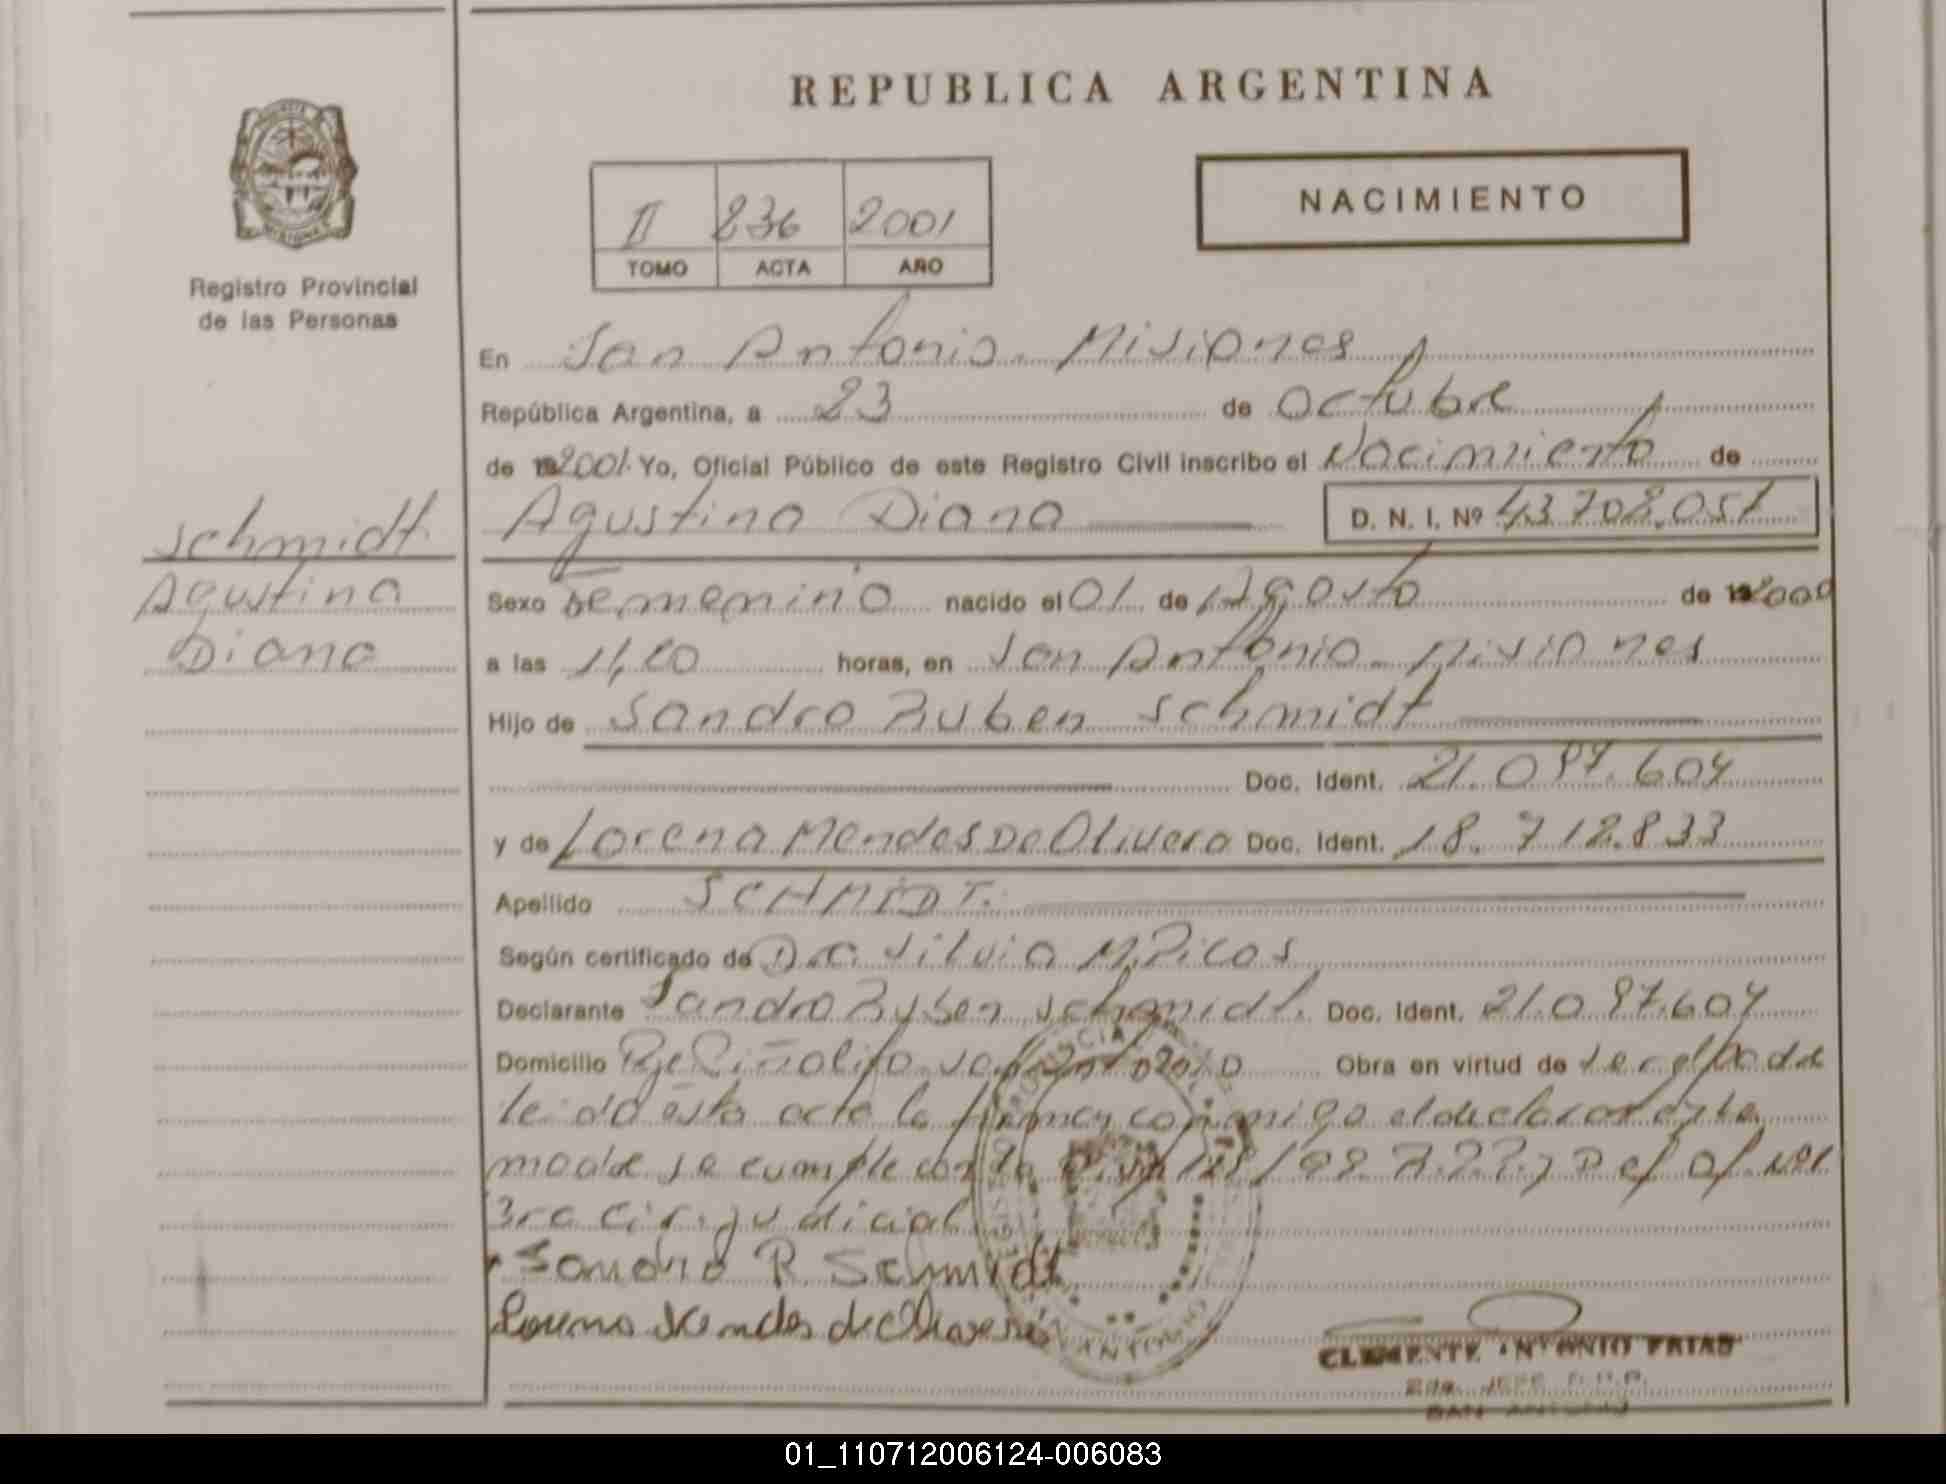 REPUBLICA ARGENTINA
NACIMIENTO
II 236 2001
TOMO ACTA AÑO
Registro Provincial
de las Personas
Schmidt
Agustina
Diana
En San Antonio Misiones
República Argentina, a 23 de Octubre
de 2001 Yo, Oficial Público de este Registro Civil inscribo el Nacimiento de
Agustina Diana D. N. I. Nº 43.708.051
Sexo Femenino nacido el 01 de Agosto de 2000
a las 11,00 horas, en San Antonio Misiones
Hijo de Sandro Ruben Schmidt
Doc. Ident. 21.097.604
y de Lorena Mendes De Olivera Doc. Ident. 18.712.833
Apellido SCHMIDT.
Según certificado de Dra. Silvia M. Picos
Declarante Sandro Ruben Schmidt. Doc. Ident. 21.097.604
Domicilio Pje Piñalito San Antonio Obra en virtud de
leida esta acta la firman conmigo el declarante y la
madre se cumple con la
3ra Cir. judicial
Sandro R Schmidt
Lorena Mendes de Olivera
CLEMENTE ANTONIO FRIAS
SAN ANTONIO
01_110712006124-006083